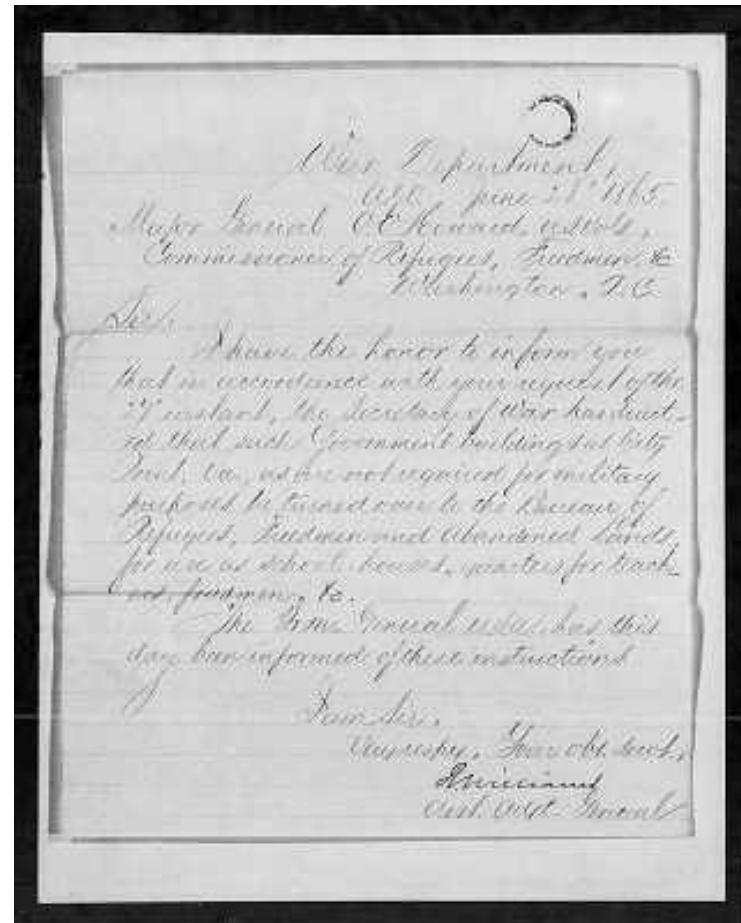 War Department,
A.G.O. June 28" 1865.
Major General O. O. Howard, U.S. Vols,
Commissioner of Refugees, Freedmen, &c
Washington, D.C.
Sir,
I have the honor to inform you
that in accordance with your request of the
27" instant, the Secretary of War has direct-
ed that such Government buildings at City
Point, Va., as are not required for military
purposes be turned over to the Bureau of
Refugees, Freedmen and Abandoned Lands,
for use as school houses, quarters for teach-
ers, freedmen, &c.
The Qr. Mr. General has this
day been informed of these instructions
I am Sir,
Very respy, Your obt. Servt.
Williams
Asst. Adjt. General